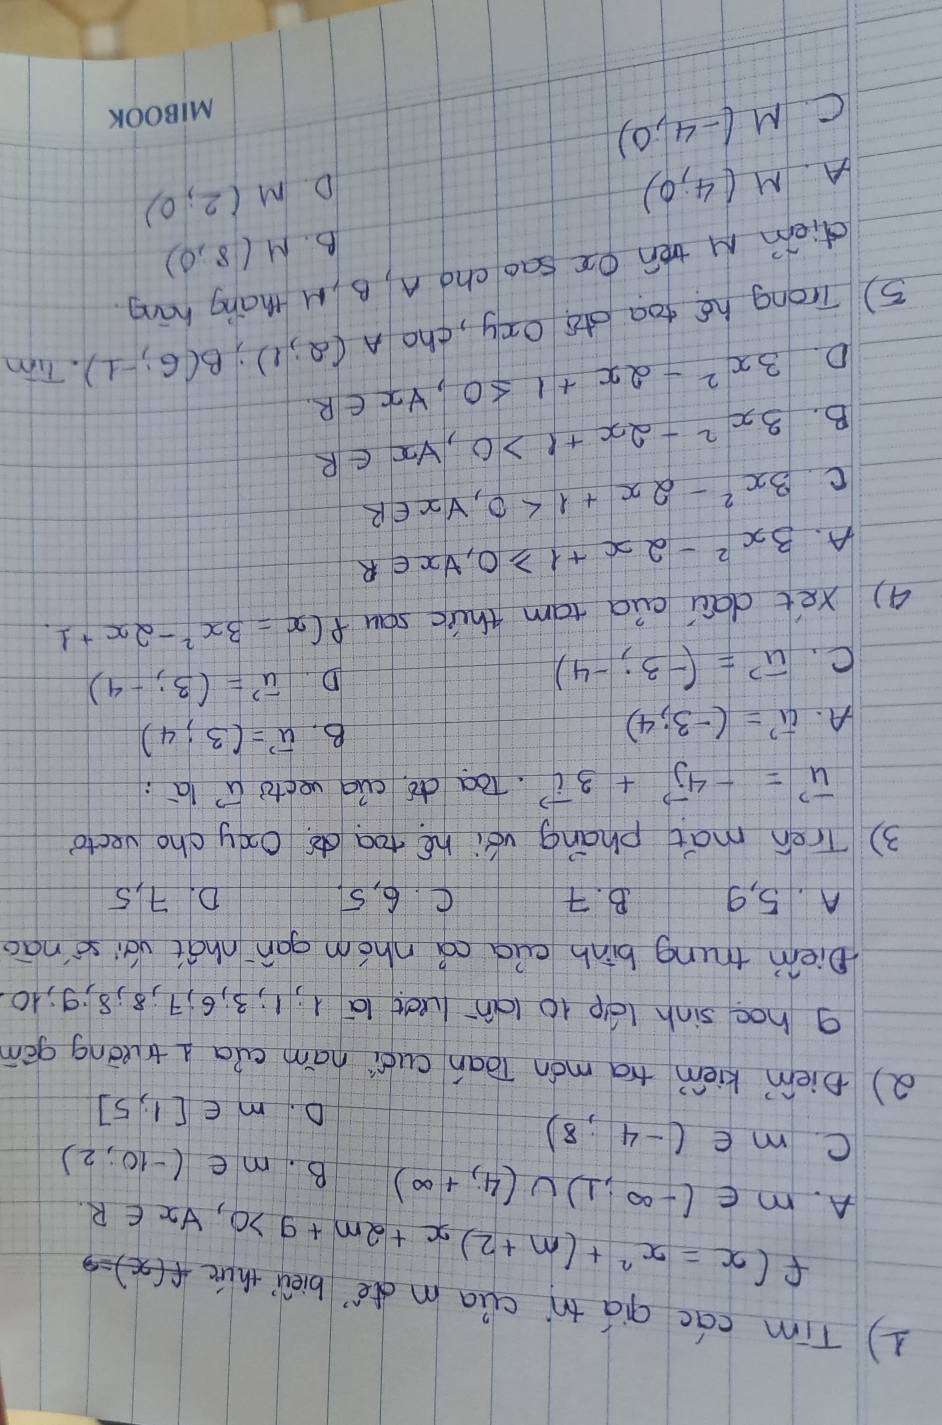 1) Tìm các giá trị của m để biểu thức f(x)=
f(x = x² + (m+2)x + 2m + 9 > 0, ∀x ∈ R.
A. m ∈ (-∞; 1) ∪ (4; +∞) B. m ∈ (-10; 2)
C. m ∈ (-4; 8) D. m ∈ [1; 5]
2) Điểm kiểm tra môn Toán cuối năm của 1 trường gồm
9 học sinh lớp 10 lần lượt là 1; 1; 3; 6; 7; 8; 8; 9; 10.
Điểm trung bình của cả nhóm gần nhất với số nào
A. 5,9 B. 7 C. 6,5. D. 7,5
3) Trên mặt phẳng với hệ tọa độ Oxy cho vectơ
u⃗ = -4j⃗ + 3i⃗. Tọa độ của vectơ u⃗ là:
A. u⃗ = (-3; 4) B. u⃗ = (3; 4)
C. u⃗ = (-3; -4) D. u⃗ = (3; -4)
4) Xét dấu của tam thức sau f(x = 3x² - 2x + 1.
A. 3x² - 2x + 1 ≥ 0, ∀x ∈ R
C. 3x² - 2x + 1 < 0, ∀x ∈ R
B. 3x² - 2x + 1 > 0, ∀x ∈ R
D. 3x² - 2x + 1 ≤ 0, ∀x ∈ R.
5) Trong hệ tọa độ Oxy, cho A (2; 1); B(6; -1). Tìm
điểm M trên Ox sao cho A, B, M thẳng hàng.
A. M (4; 0) B. M (8; 0)
C. M (-4; 0) D. M (2; 0)
MIBOOK